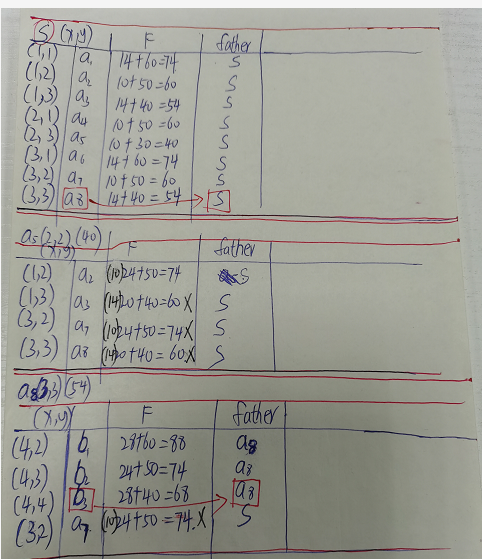 S (x,y) F father
(1,1) a1 14+60=74 S
(1,2) a2 10+50=60 S
(1,3) a3 14+40=54 S
(2,1) a4 10+50=60 S
(2,3) a5 10+30=40 S
(3,1) a6 14+60=74 S
(3,2) a7 10+50=60 S
(3,3) a8 14+40=54 S
a5(2,2) (40)
(x,y) F father
(1,2) a2 (10)24+50=74 S
(1,3) a3 (14)20+40=60X S
(3,2) a7 (10)24+50=74X S
(3,3) a8 (14)20+40=60X S
a8(3,3) (54)
(x,y) F father
(4,2) b1 28+60=88 a8
(4,3) b2 24+50=74 a8
(4,4) b3 28+40=68 a8
(3,2) a7 (10)24+50=74.X S